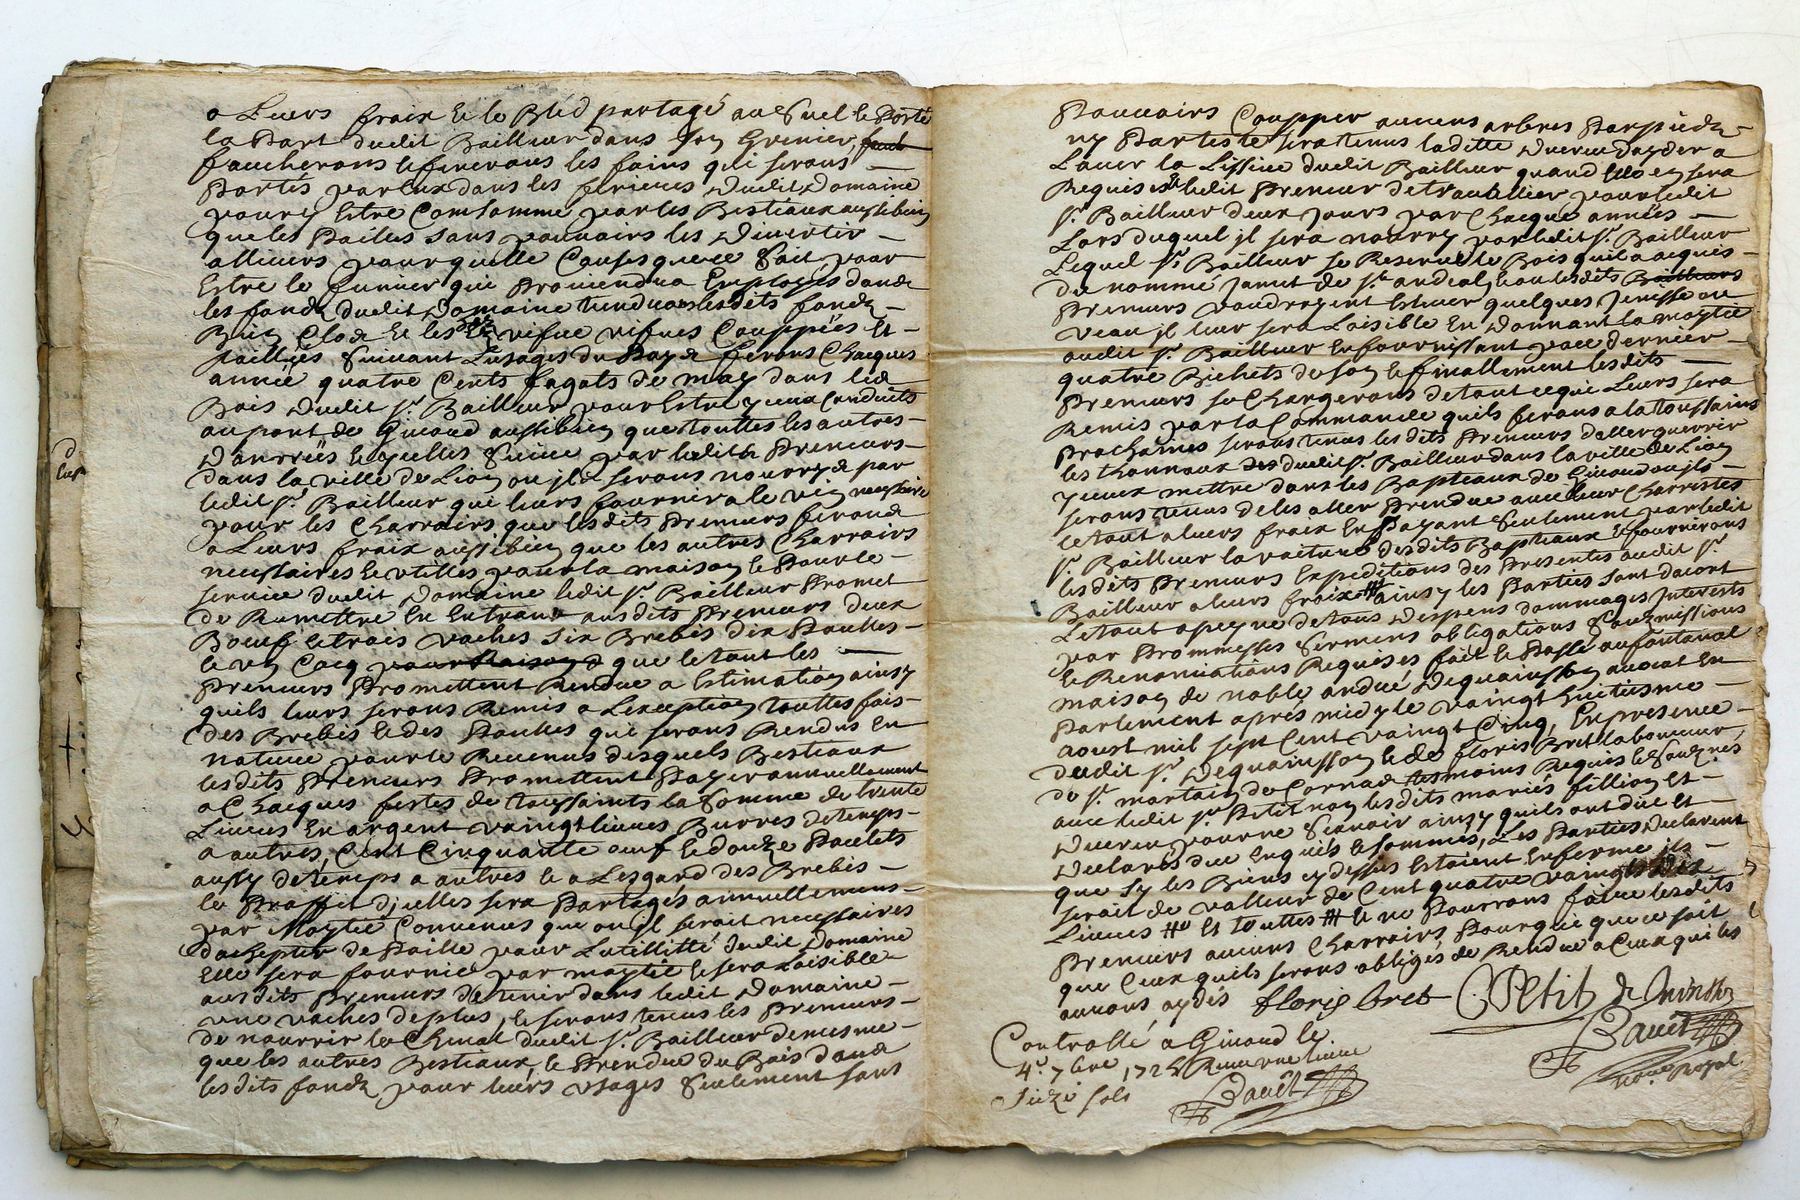 a Leurs fraix et le Bled partagé au Suel et Porté
la Part dudit Bailleur dans son Grenier
faucherons et fenerons les foins qui serons
Portés par eux dans les fenieres dudit Domaine
pour y Estre Consommé par les Bestiaux aussibien
que les Pailles sans pouvoirs les Divertir
allieurs pour quelle Cause que ce Soit pour
Estre le fumier qui Proviendra Employés dans
les fonds dudit Domaine tiendrons lesdits fonds
Bien Clos et les vignes Couppées et
tailliés Suivant Lusages du Pays ferons Chacques
année quatre Cents fagots de may dans les
Bois dudit Sr. Bailleur pour Estre yceux Conduits
au port de Givord aussibien que touttes les autres
Danrrées et quelles Suitte par lesdits Preneurs
dans la ville de Lion ou jls serons nourrys par
ledit Sr. Bailleur qui leurs fournira le vin necessaire
pour les Charrois que lesdits Preneurs ferons
a Leurs fraix aussibien que les autres Charrois
necessaires et utilles pour la maison et Pour le
service dudit Domaine ledit Sr. Bailleur Promet
de Remettre En Entrant ausdits Preneurs deux
Boeufs et trois vaches Six Brebis dix Poulles
et un Cocq que le tout les
Preneurs Promettent Rendre a Estimation ainsy
quils leurs serons Remis a Lexception touttes fois
des Brebis et des Poulles qui serons Rendus en
nature pour le Revenus desquels Bestiaux
lesdits Preneurs Promettent Payer annuellement
a Chacques festes de toussaints la Somme de trente
Livres En argent vaingt livres Burres de temps
a autres, Cent Cinquante oeuf et douze Poulets
aussy de temps a autres et a Lesgard des Brebis
le Proffit d'jcelles sera Partagés annuellement
par Moytié Convenus que ou jl serait necessaires
dachepter de Paille pour Lutillitté dudit Domaine
Elle sera fournie par moytié et sera Loisible
ausdits Preneurs de tenir dans ledit Domaine
une vaches de plus, et serons tenus les Preneurs
de nourrir le Cheval dudit Sr. Bailleur de mesme
que les autres Bestiaux, et Prendre du Bois dans
lesdits fonds pour leurs usages Seulement sans
Pouvoirs Coupper aucuns arbres Par pieds
ny Par teste sera tenus laditte Dayder a
Laver la Lissive dudit Bailleur quand Elle en sera
Requise et ledit Preneur de travailler pour ledit
Sr. Bailleur deux jours par Chacque années
Lors duquel jl sera nourry par ledit Sr. Bailleur
Lequel Sr. Bailleur se Reserve le Bois quil a acquis
du nommé Janut de St. andeol, et ou lesdits Bailleurs
Preneurs voudroyent Eslever quelques Jenisse ou
veau jl leur sera Loisible En Donnant la moytié
audit Sr. Bailleur En fournissant par ce dernier
quatre Bichets de son et finallement lesdits
Preneurs se Chargerons de tout ce qui Leurs sera
Remis par la Commande quils ferons a la toussains
Prochaines serons tenus lesdits Preneurs daller querrir
les thonneaux dudit Sr. Bailleur dans la ville de Lion
yceux mettre dans les Bapteaux de Givord ou jls
serons tenus de les aller Prendre avec leur Charrettes
le tout a leurs fraix En Payant Seulement par ledit
Sr. Bailleur la voiture desdits Bapteaux et fournirons
lesdits Preneurs Expeditions des Presentes audit Sr.
Bailleur a leurs fraix ainsy les Parties sont dacort
Le tout a peyne de tous Despens dommages Interests
par Prommesses Sermens obligations Soubmissions
et Renonciations Requises fait et Passé au fontanal
maison de noble andré Dequainsson avocat En
Parlement après midy le vaingt huitiesme
aoust mil sept Cent vaingt Cinq, En presence
dudit Sr. Dequainsson et de floris Bret laboureur
de St. martain de Cornas tesmoins Requis et Soubznés
avec ledit Sr. Petit non lesdits mariés fillion et
pour ne Scavoir ainsy quils ont dit et
Declaré due Enquis et sommés, Les Parties Declarent
que sy les Biens cy dessus Estoient En ferme jls
serait de valleur de Cent quatre vaingts Dix
Livres Et touttes et ne Pourrons faire lesdits
Preneurs aucuns Charroirs Pour qui que ce soit
que Ceux quils serons obligés de Rendre a Ceux qui les
auront aydés floris bret Petit
Bavêt
nore. royal.
Controllé a Givord le
4e. 7bre 1725 Receu une livre
Seize sols
Bavêt